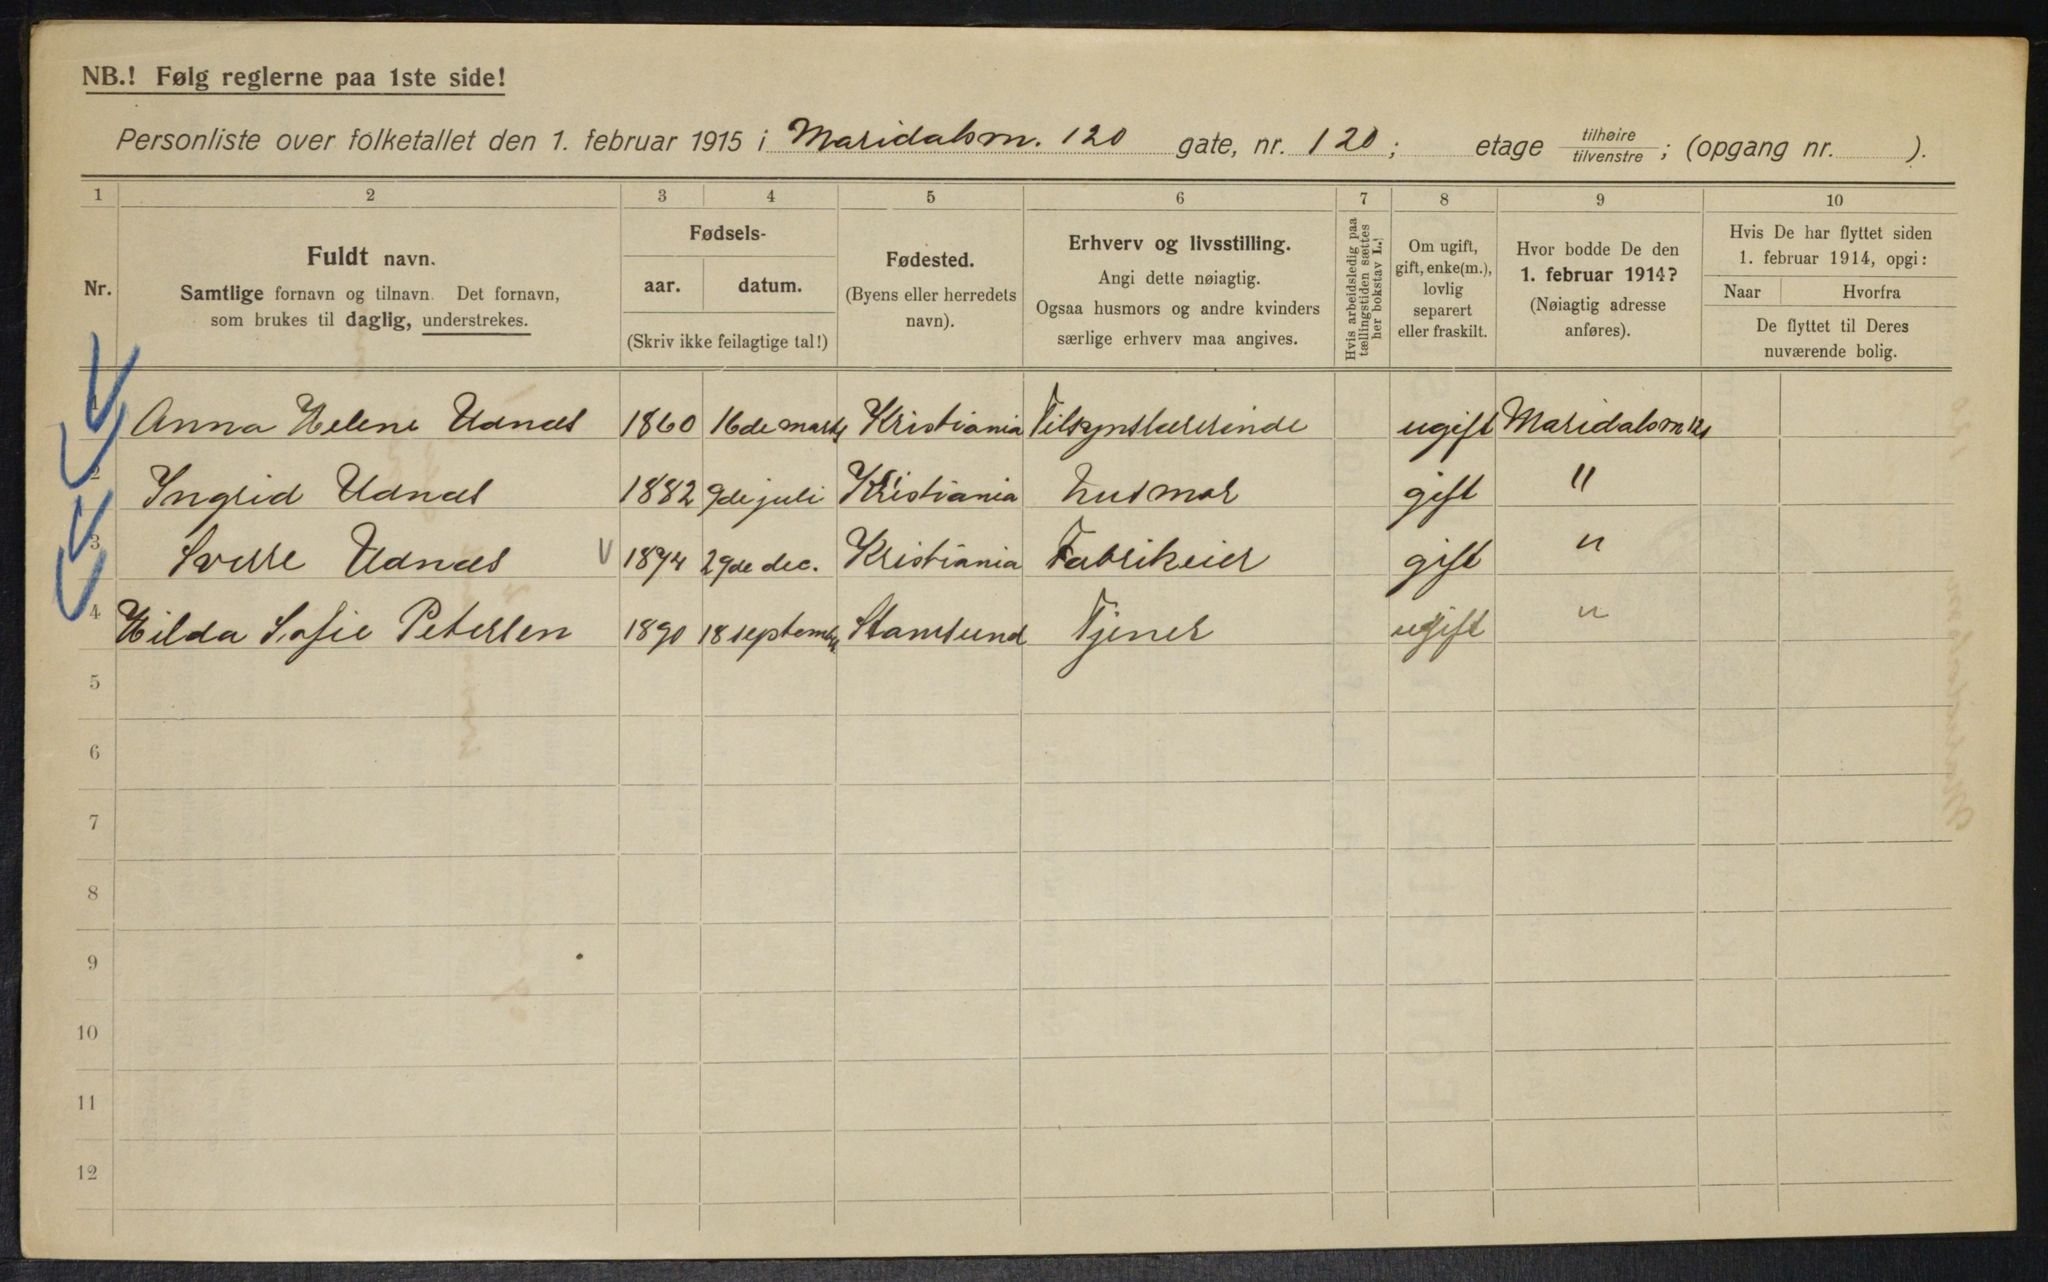 NB.! Følg reglerne paa 1ste side!
Personliste over folketallet den 1. februar 1915 i Maridalsm. 120 gate, nr. 120; etage tilhøire / tilvenstre; (opgang nr. ).
1 2 3 4 5 6 7 8 9 10
Nr.
Fuldt navn.
Samtlige fornavn og tilnavn. Det fornavn,
som brukes til daglig, understrekes.
Fødsels-
aar. datum.
(Skriv ikke feilagtige tal!)
Fødested.
(Byens eller herredets
navn).
Erhverv og livsstilling.
Angi dette nøiagtig.
Ogsaa husmors og andre kvinders
særlige erhverv maa angives.
Hvis arbeidsledig paa
tællingstiden sættes
her bokstav L.!
Om ugift,
gift, enke(m.),
lovlig
separert
eller fraskilt.
Hvor bodde De den
1. februar 1914?
(Nøiagtig adresse
anføres).
Hvis De har flyttet siden
1. februar 1914, opgi:
Naar Hvorfra
De flyttet til Deres
nuværende bolig.
1 Anna Helene Udnæs 1860 16de marts Kristiania Tilsynslærerinde ugift Maridalsm
2 Ingrid Udnæs 1882 9de juli Kristiania husmor gift "
3 Sverre Udnæs 1874 29de dec. Kristiania Fabrikeier gift "
4 Hilda Sofie Petersen 1890 18 septemb Stamsund Tjener ugift "
5
6
7
8
9
10
11
12